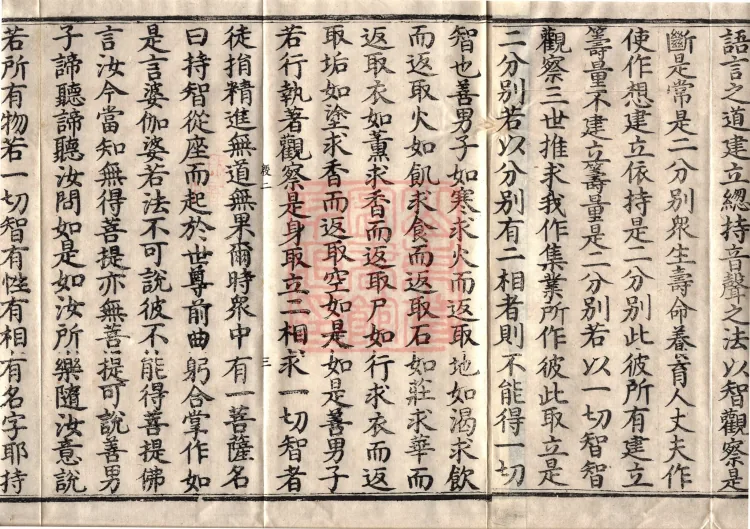 語言之道建立緫持音聲之法以智觀察是
斷是常是二分別衆生壽命養育人丈夫作
使作想建立依持是二分別此彼所有建立
籌量不建立籌量是二分別若以一切智智
觀察三世推求我作集業所作彼此取立是
二分別若以分別有二相者則不能得一切
智也善男子如寒求火而返取地如渴求飲
而返取火如飢求食而返取石如莊求華而
返取衣如薰求香而返取尸如行求衣而返
取垢如塗求香而返取空如是如是善男子
若行執著觀察是身取立二相求一切智者
殺二
三
徒捐精進無道無果爾時衆中有一菩薩名
曰持智從座而起於世尊前曲躬合掌作如
是言婆伽婆若法不可說彼不能得菩提佛
言汝今當知無得菩提亦無菩提可說善男
子諦聽諦聽汝問如是如汝所樂隨汝意說
若所有物若一切智有性有相有名字耶持